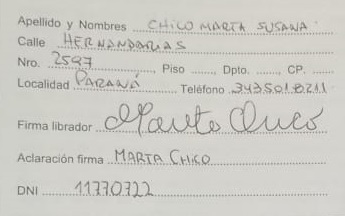 Apellido y Nombres CHICO MARTA SUSANA
Calle HERNANDARIAS
Nro. 2597, Piso ......., Dpto. ......, CP. .....
Localidad PARANÁ Teléfono 3435018211
Firma librador Marta Chico
Aclaración firma MARTA CHICO
DNI 11770722